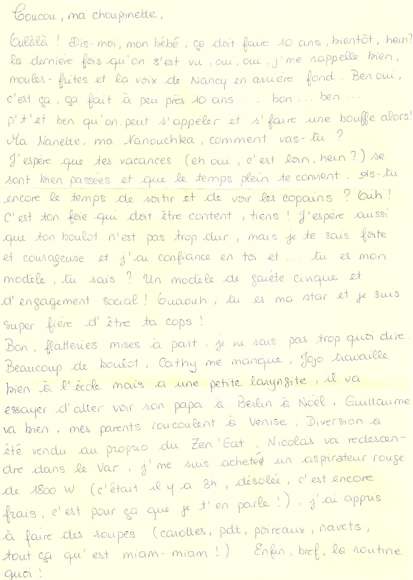 Coucou, ma choupinette,
Culàlà ! Dis-moi, mon bébé, ça doit faire 10 ans, bientôt, hein?
la dernière fois qu'on s'est vu, oui, oui, j'me rappelle bien,
moules-frites et la voix de Nancy en arrière fond. Ben oui,
c'est ça, ça fait à peu près 10 ans... bon... ben...
p't'et ben qu'on peut s'appeler et s'faire une bouffe alors!
Ma Nanette, ma Nanouchka, comment vas-tu ?
J'espère que tes vacances (eh oui, c'est loin, hein ?) se
sont bien passées et que le temps plein te convient. As-tu
encore le temps de sortir et de voir les copains ? Ouh !
C'est ton foie qui doit être content, tiens ! J'espère aussi
que ton boulot n'est pas trop dur, mais je te sais forte
et courageuse et j'ai confiance en toi et ... tu es mon
modèle, tu sais ? Un modèle de gaieté cinque et
d'engagement social ! Ouaouh, tu es ma star et je suis
super fière d'être ta cops !
Bon, flatteries mises à part, je ne sais pas trop quoi dire.
Beaucoup de boulot, Cathy me manque, Jojo travaille
bien à l'école mais a une petite laryngite, il va
essayer d'aller voir son papa à Berlin à Noël, Guillaume
va bien, mes parents roucoulent à Venise, Diversion a
été vendu au proprio du Zen'Eat, Nicolas va redescen-
dre dans le Var, j'me suis acheté un aspirateur rouge
de 1800 W (c'était il y a 3h, désolée, c'est encore
frais, c'est pour ça que je t'en parle !), j'ai appris
à faire des soupes (carottes, pdt, poireaux, navets,
tout ça qu'est miam-miam !) Enfin, bref, la routine
quoi !